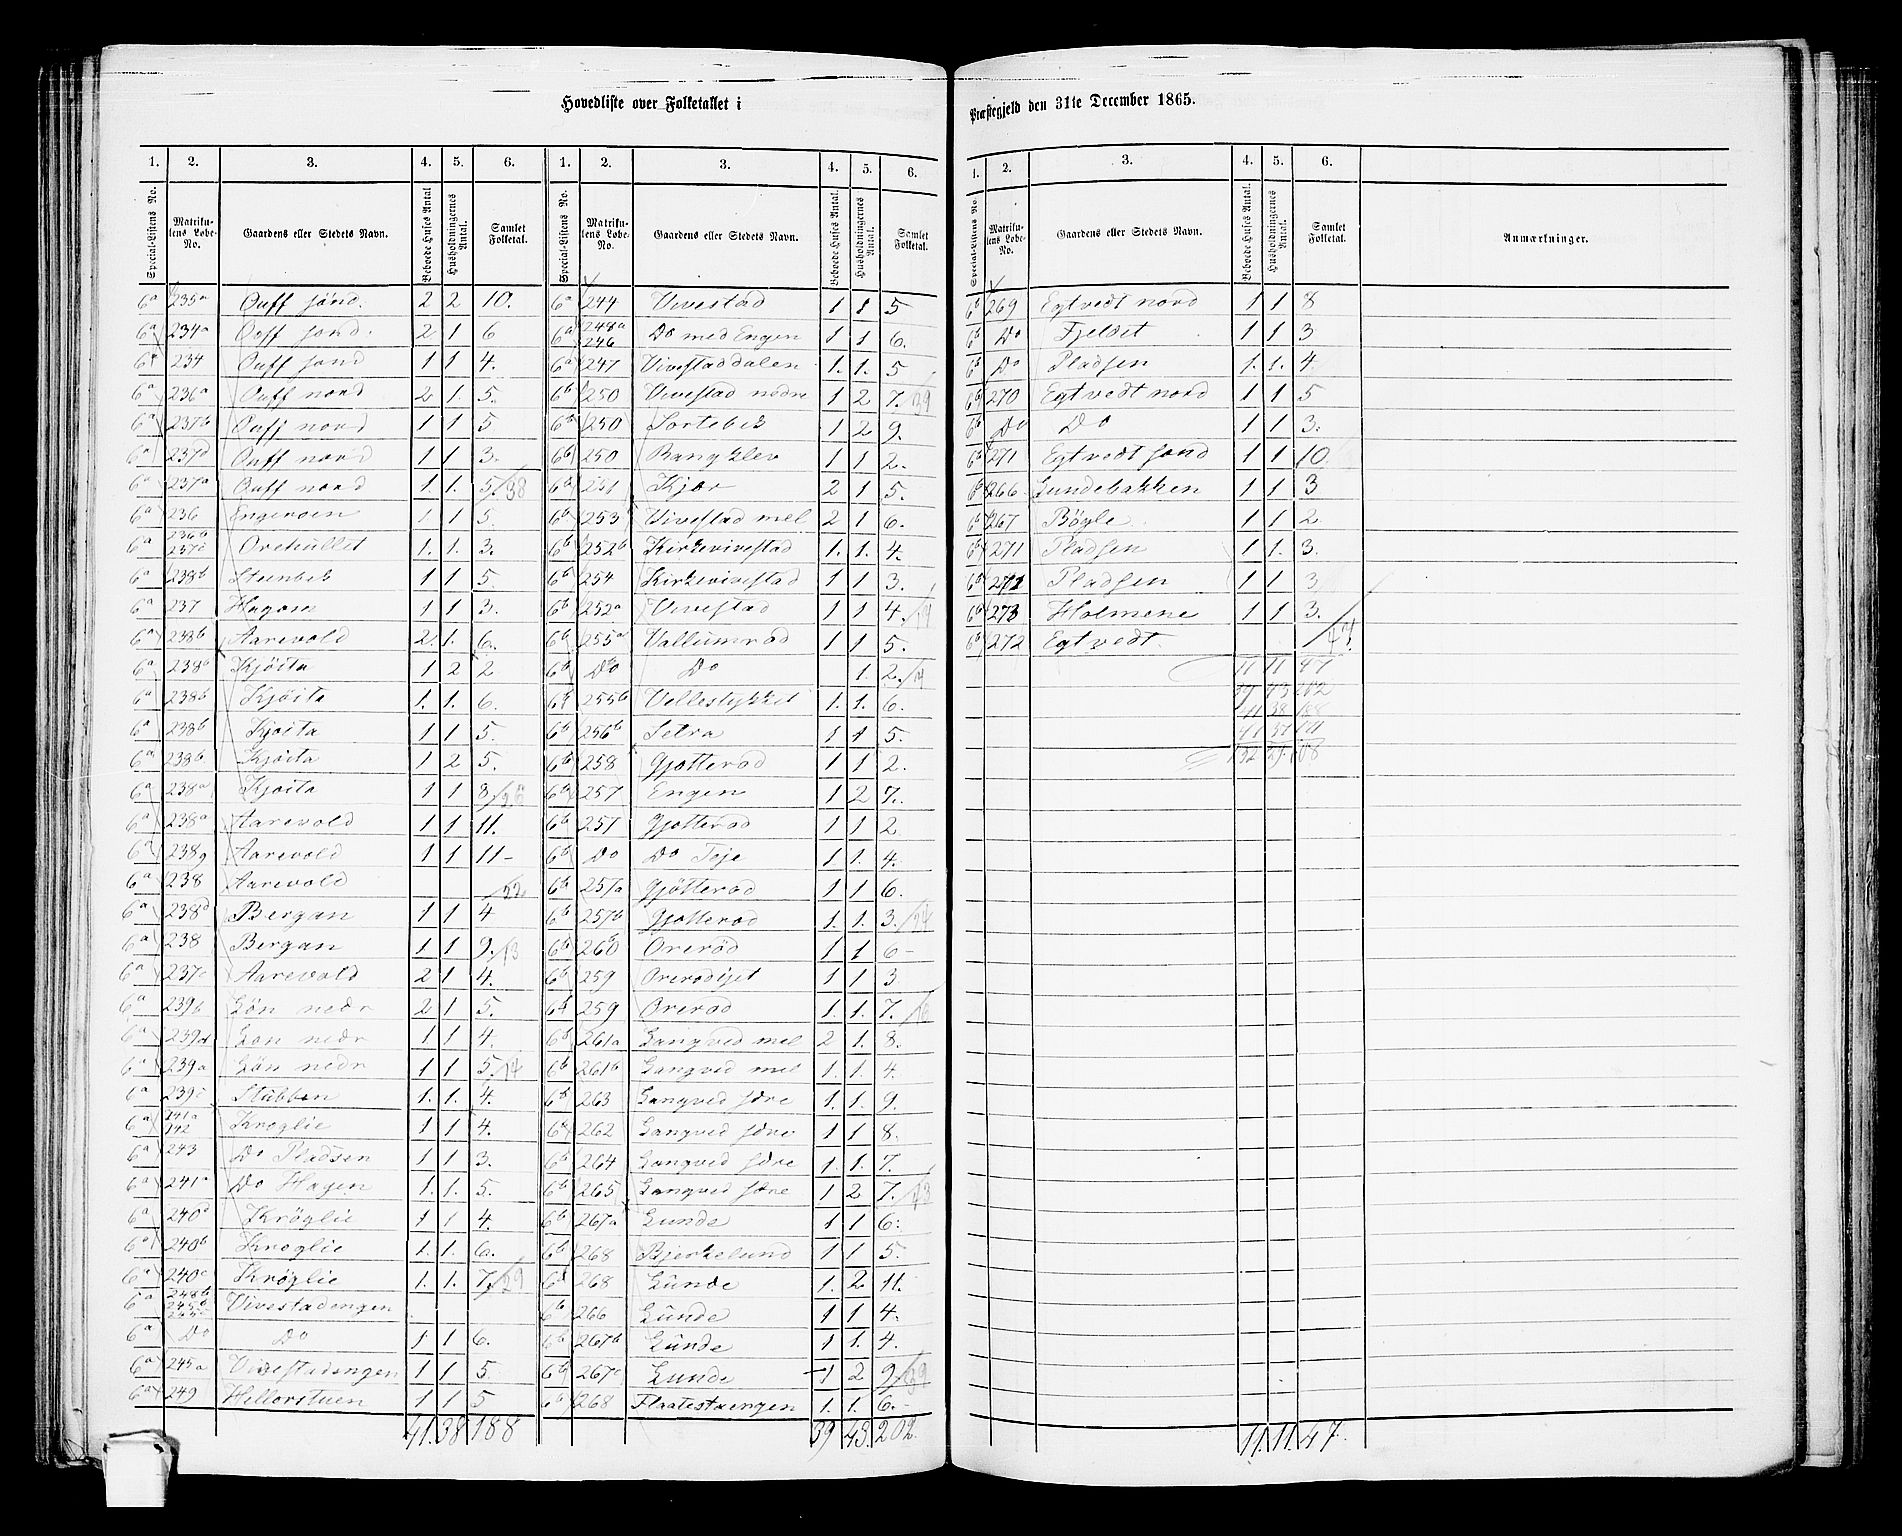 Hovedliste over Folketallet i
Præstegjeld den 31te December 1865.
1. 2. 3. 4. 5. 6. 1. 2. 3. 4. 5. 6.
Special-Listens No. Matrikulens Løbe-No. Gaardens eller Stedets Navn. Beboede Huses Antal. Husholdningernes Antal. Samlet Folketal. Special-Listens No. Matrikulens Løbe-No. Gaardens eller Stedets Navn. Beboede Huses Antal. Husholdningernes Antal. Samlet Folketal.
6a 235a Ouff sønd. 2 2 10.
6a 234a Ouff sønd. 2 1 6
6a 234 Ouff sønd 1 1 4.
6a 236a Ouff nord 2 1. 5.
6a 237b Ouff nord 1 1 5
6a 237d Ouff nord 1 1 3.
6a 237a Ouff nord 1 1. 5/38
6a 236 Engeroen 1 1 5.
6a 236b 237c Orehullet 1. 1. 3.
6a 238b Steenbek 1 1 5.
6a 237 Hagom 1 1 3.
6a 238b Aarevold 2. 1. 6.
6a 238b Kjöita 1 2 2
6a 238b Kjöita 1. 1. 6.
6a 238b Kjöita 1 1 5.
6a 238b Kjöita 1 2 5.
6a 238a Kjöita 1 1 8/26
6a 238a Aarevold 1 1 11.
6a 238g Aarevold 1 1 11-
6a 238 Aarevold /22
6a 238d Bergan 1 1 4
6a 238 Bergan 1 1 9./13
6a 237c Aarevold 2 1 4.
6a 239b Lön nedr 2 1 5.
6a 239d Lön nedr 1 1 4.
6a 239a Lön nedr 1 1 5/14
6a 239c Stubben 1. 1. 4.
6a 141a 142 Kroglie 1 1 4.
6a 243 Do Pladsen 1 1 3.
6a 241a Do Hagen 1. 1. 5.
6a 240d Kröglie 1 1 4.
6a 240b Kroglie 1. 1. 6.
6a 240c Kröglie 1. 1. 7./29
6a 248b 245b 245c Vivestadengen
6a Do Do 1 1 6.
6a 245a Vivestadengen 1 1 5.
6a 249 Hellorstuen 1 1 5
41. 38 188
6a 244 Vivestad 1 1 5
6a 248a 246 Do med Engen 1 1 6.
6a 247 Vivestaddalen 1. 1. 5
6b 250 Vivestad nedre 1 2 7./39
6b 250 Sortebek 1 2 9.
6b 250 Rangklev 1 1 2.
6b 251 Kjær 2 1 5.
6b 253 Vivestad mel 2 1 6.
6b 252b Kirkevivestad 1. 1. 4.
6b 254 Kirkevivestad 1 1 3.
6b 252a Vivestad 1 1 4./19
6b 255a Vallumrød 1 1 5.
6b Do Do 1. 2./14
6b 255b Vellestykket 1. 1. 6.
6b 256b Setra 1 1 5.
6b 258 Gjøtterød 1 1 2.
6b 257 Engen 1 2 7.
6b 257 Gjøtterød 1 1 2
6b Do Do Teje 1 1. 4.
6b 257a Gjøtterød 1 1 6.
6b 257b Gjøtterød 1. 1. 3./24
6b 260 Orerød 1 1 6-
6b 259 Orerødiset 1 1 3
6b 259 Orerød 1. 1. 7./16
6b 261a Langved mel 2 1. 8.
6b 261b Langved mel 1. 1. 4.
6b 263 Langved søre 1. 1. 9.
6b 262 Langved søre 1 1 8.
6b 264 Langved søre 1. 1. 7.
6b 265 Langved søre 1 2 7./43
6b 267a Lunde 1 1 6.
6b 268 Bjerkelund 1 1 5.
6b 268 Lunde 1. 2 11.
6b 266 Lunde 1 1 4.
6b 267b Lunde 1 1. 4.
6b 267c Lunde 1 2 9/39
6b 268 Flaatestuengen 1. 1. 6.-
39 43. 202.
1. 2. 3. 4. 5. 6.
Special-Listens No. Matrikulens Løbe-No. Gaardens eller Stedets Navn. Beboede Huses Antal. Husholdningernes Antal. Samlet Folketal. Anmærkninger.
6b 269 Egtvedt nord 1 1 8
6b Do Fjeldet 1 1 3
6b Do Pladsen 1. 1. 4.
6b 270 Egtvedt nord 1 1 5
6b Do Do 1 1 3.
6b 271 Egtvedt sønd 1 1 10
6b 266 Lundebakken 1 1 3
6b 267 Bögle 1 1 2
6b 271 Pladsen 1 1. 3.
6b 271 Pladsen 1 1 3
6b 273 Holmene 1 1 3.
6b 272 Egtvedt.
11 11 47
39 43 202
41 38 188
11. 11. 47.